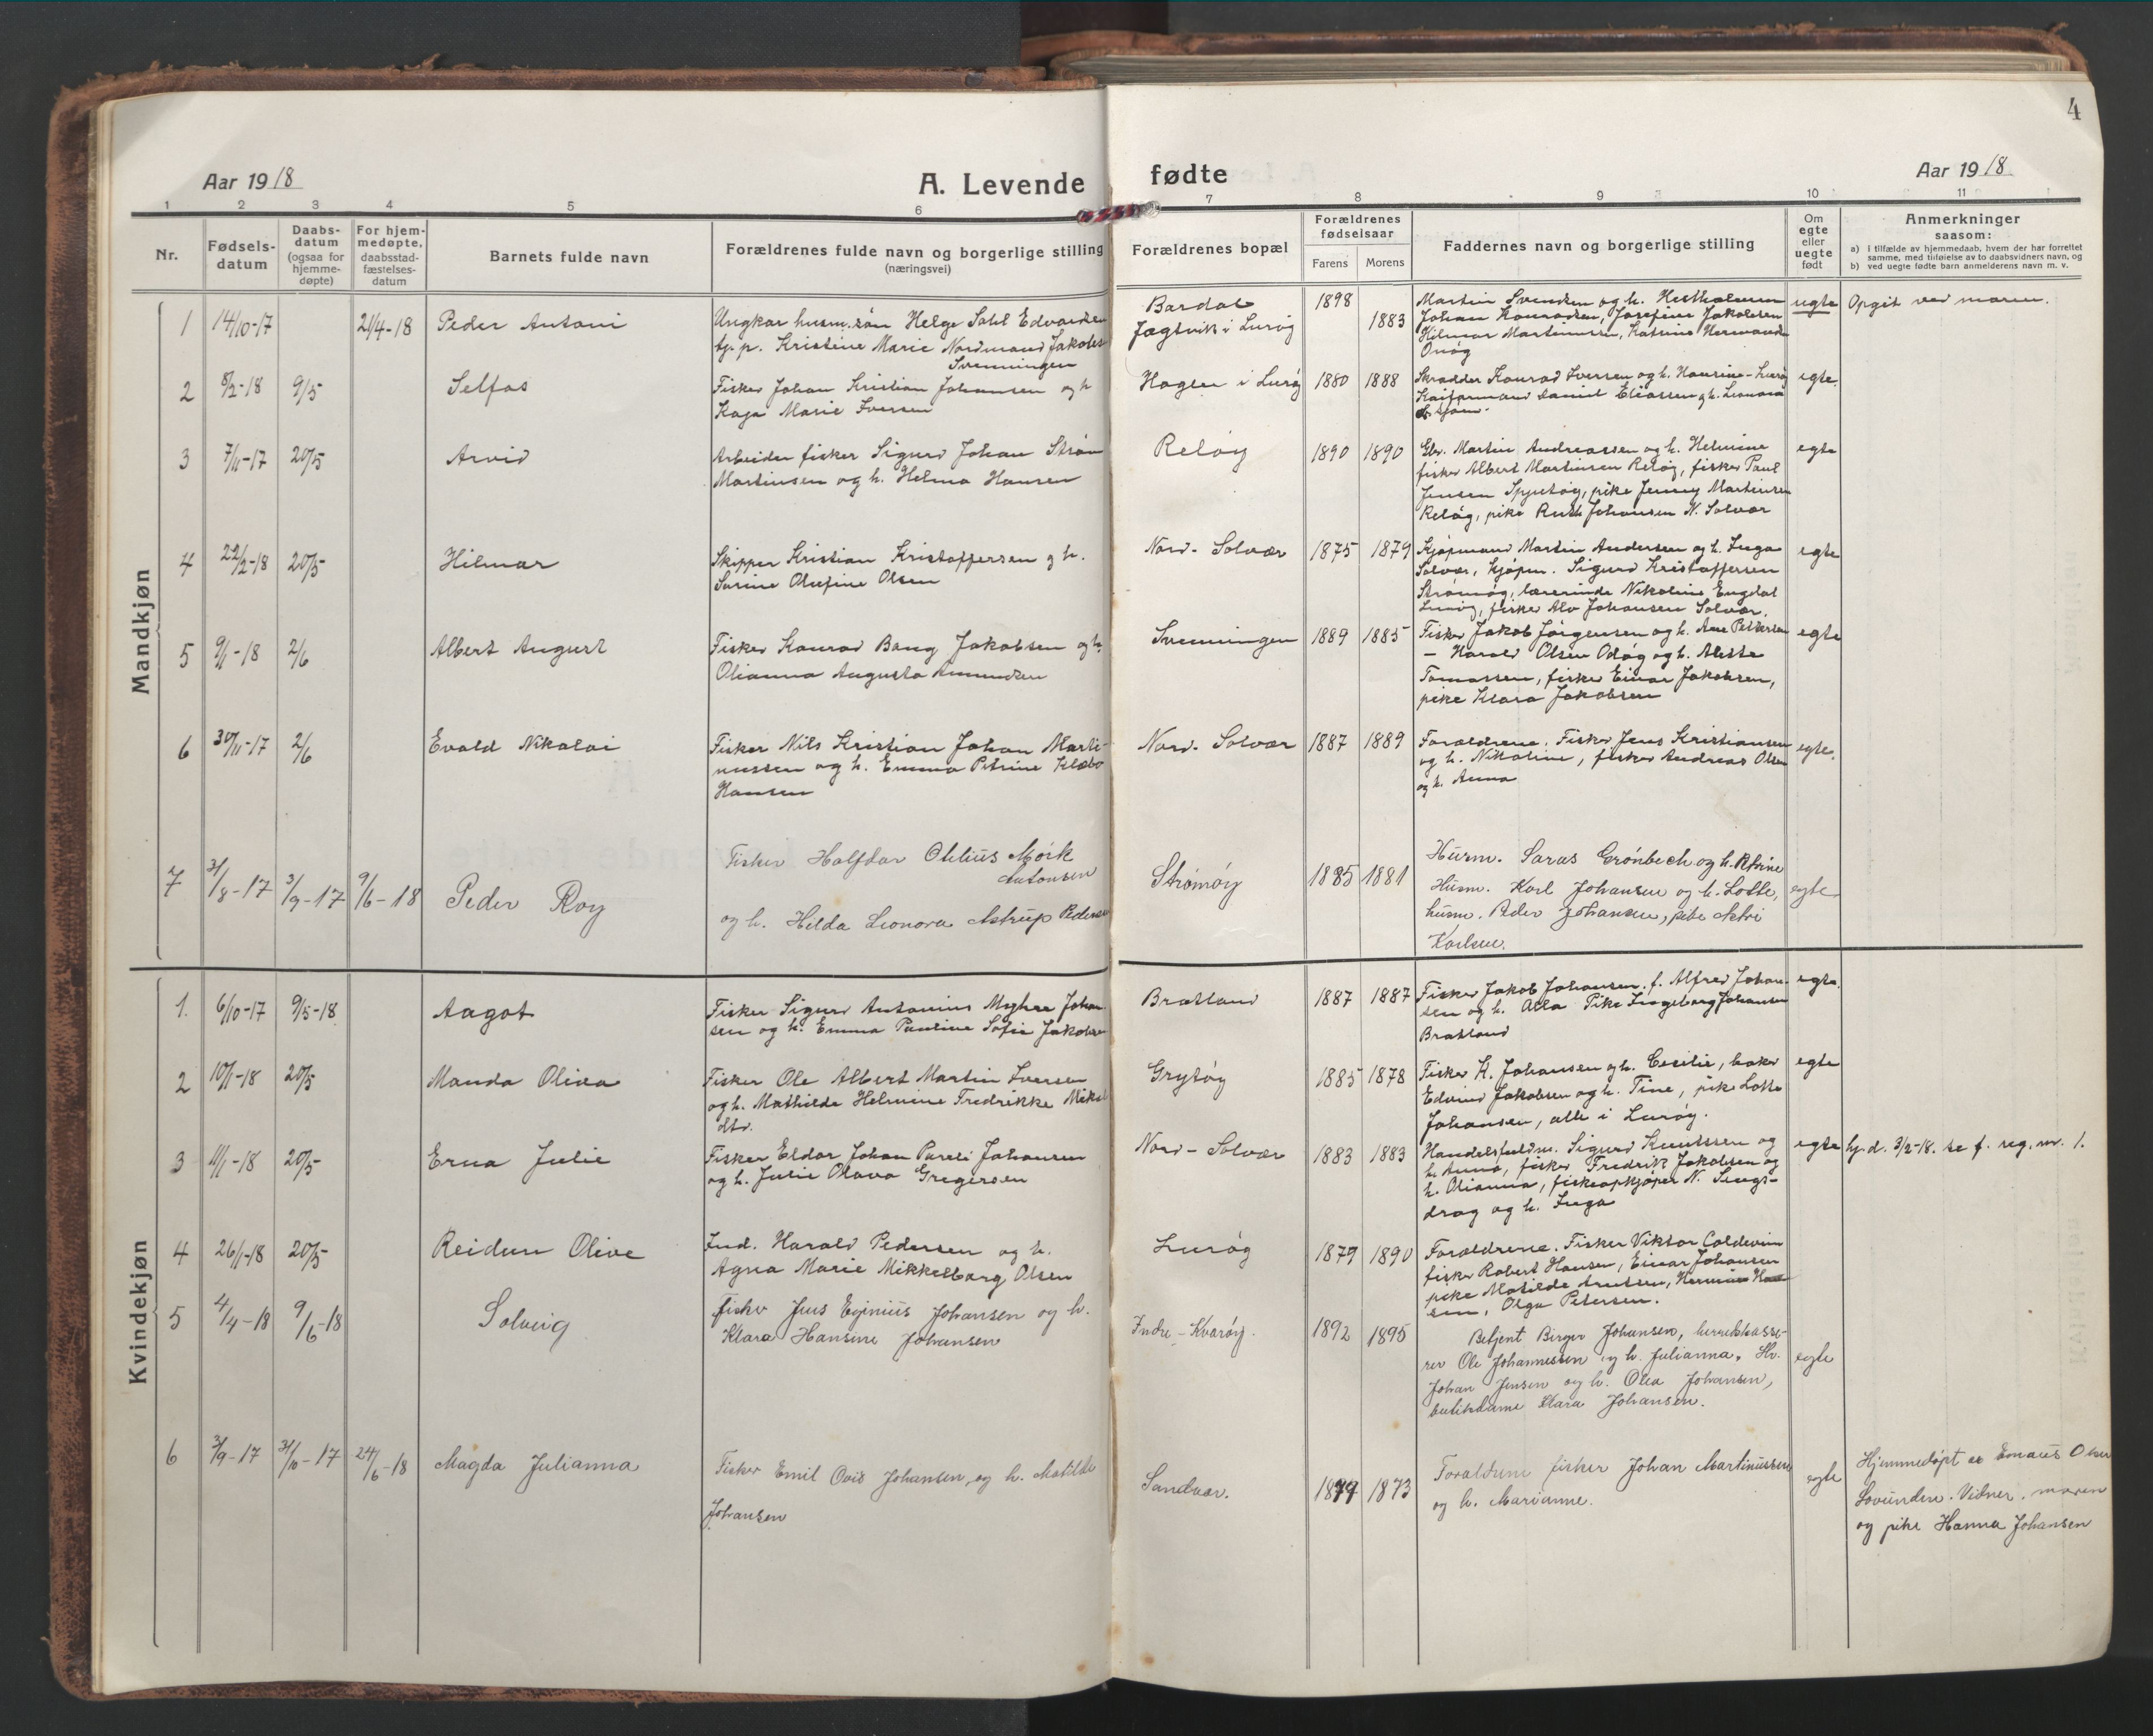 4
Aar 1918
A. Levende
fødte
Aar 1918
1 2 3 4 5 6 7 8 9 10 11
Nr.
Fødsels-
datum
Daabs-
datum
(ogsaa for
hjemme-
døpte)
For hjem-
medøpte,
daabsstad-
fæstelses-
datum
Barnets fulde navn
Forældrenes fulde navn og borgerlige stilling
(næringsvei)
Forældrenes bopæl
Forældrenes
fødselsaar
Farens Morens
Faddernes navn og borgerlige stilling
Om
egte
eller
uegte
født
Anmerkninger
saasom:
a) i tilfælde av hjemmedaab, hvem der har forrettet
samme, med tilføielse av to daabsvidners navn, og
b) ved uegte fødte barn anmelderens navn m. v.
Mandkjøn
1 14/10-17 21/4-18 Peder Antoni
Ungkar husm. søn Helge Edvardsen
og p. Kristine Marie Nordmand Jakobs
Svenningen
Bardal
Fagtvik i Lurøy
1898 1883
Martin Svendsen og h. Hestholmen
Johan Konradsen, Josefine Jakobsen
Hilmar Martinussen, Katrine Hermandsen
Onøy
uegte
Opgit ved moren.
2 8/2-18 9/5 Selfas
Fisker Johan Kristian Johansen og h
Kaja Marie Iversen
Haglen i Lurøy
1880 1888
Skrædder Konrad Iversen og h. Hansine - Lurøy
Daniel Eliassen og h. Leonora
egte.
3 7/11-17 20/5 Arvid
Arbeider fisker Sigurd Johan Strøm
Martinsen og h. Helma Hansen
Reløy
1890 1890
Gbr. Martin Andreassen og h. Helmine
fisker Albert Martinsen Reløy, fisker Paul
Jensen Spjutøy, pike Jenny Martinsen
Reløy, pike Ruth Johansen N. Solvær
egte
4 22/2-18 20/5 Hilmar
Skipper Kristian Kristoffersen og h.
Sarine Olufine Olsen
Nord-Solvær
1875 1879
Kjøpmand Martin Andersen og h. Inga
Solvær, kjøpm. Sigurd Kristoffersen
Strømøy, lærerinde Nikoline Engdal
Lurøy, fisker Alv Johansen Solvær.
egte
5 9/1-18 2/6 Albert August
Fisker Konrad Bang Jakobsen og h.
Olianna Augusta Amundsen
Svenningen
1889 1885
Fisker Jakob Jørgensen og h. Ane Pettersen
- Harald Olsen Odøy og h. Alette
Tomassen, fisker Einar Jakobsen,
pike Klara Jakobsen
egte
6 30/11-17 2/6 Evald Nikolai
Fisker Nils Kristian Johan Marti-
nussen og h. Emma Petrine Klæbo
Hansen
Nord-Solvær
1887 1889
Forældrene. Fisker Jens Kristiansen
og h. Nikoline, fisker Andreas Olsen
og h. Anna
egte.
7 31/8-17 3/9-17 9/6-18 Peder Roy
Fisker Halfdar Otelius Mørk
Antonsen
og h. Hilda Leonora Astrup Pedersen
Strømøy
1885 1881
Husm. Saras Grønbech og h. Petrine
Husm. Karl Johansen og h. Lotte,
husm. Peder Johansen, pike Astri
Karlsen.
egte
Kvindekjøn
1. 6/10-17 9/5-18 Aagot
Fisker Sigurd Antonius Myhre Johan-
sen og h. Emma Pauline Sofie Jakobsen
Bratland
1887 1887
Fisker Jakob Johansen. f. Alfred Johan-
sen og h. Alla Pike Ingeborg Johansen
Bratland
egte.
2 10/1-18 20/5 Manda Oliva
Fisker Ole Albert Martin Iversen
og h. Mathilde Helmine Fredrikke Mikal
dtr.
Grytøy
1885 1878
Fisker K. Johansen og h. Cecilie, baker
Edvind Jakobsen og h. Tine, pike Lotte
Johansen, alle i Lurøy.
egte
3 11/1-18 20/5 Erna Julie
Fisker Eldar Johan Pareli Johansen
og h. Julie Olava Gregersen
Nord-Solvær
1883 1883
Handelsfuldm. Sigurd Knutssen og
h. Anna, fisker Fredrik Jakobsen og
h. Olianna, fiskeopkjøper N. Sengs-
drag og h. Inga
egte
hj. d. 3/2-18. se f. reg. nr. 1.
4 26/1-18 20/5 Reidun Olive
Ind. Harald Pedersen og h.
Agna Marie Mikkelborg Olsen
Lurøy
1879 1890
Forældrene. Fisker Viktor Coldevin
fisker Robert Hansen, Einar Johansen
pike Matilde Arntsen, Hermine Han-
sen, Olga Petersen.
5 4/4-18 9/6-18 Solveig
fisker Jens Eginius Johansen og h.
Klara Hansine Johansen
Indre-Kvarøy.
1892 1895
Betjent Birger Johansen, herredskasse-
rer Ole Johannessen og h. Julianna.
Johan Jensen og h. Olea Johansen,
butikdame Klara Johansen.
egte
6 3/9-17 31/10-17 24/6-18 Magda Julianna
Fisker Emil Ovid Johansen, og h. Matilde
Johansen
Sandvær.
1879 1873
Forældrene fisker Johan Martinussen
og h. Marianne.
egte
Hjemmedøpt av Emaus Olsen
Lovunden. Vidner. moren
og pike Hanna Johansen